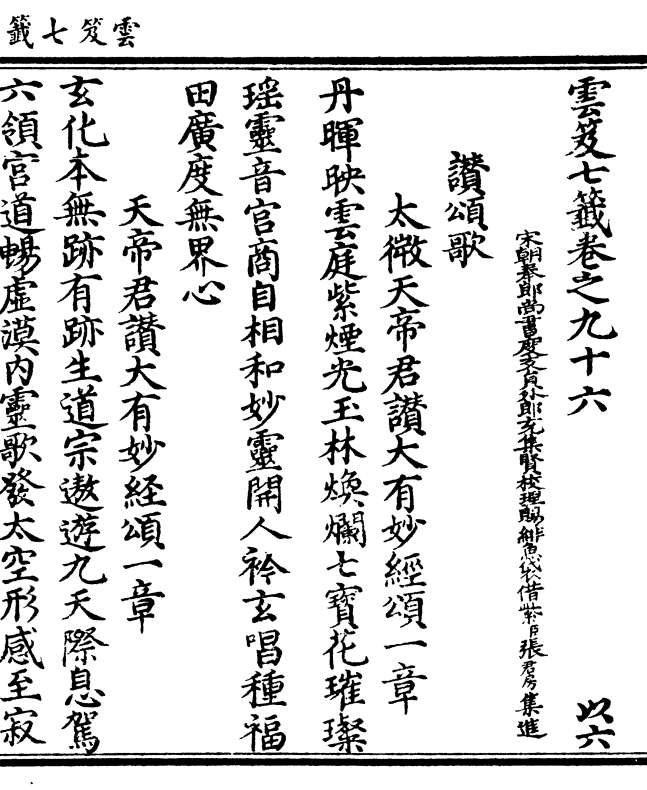 雲笈七籤
雲笈七籤卷之九十六 以六
宋朝奉郎尚書度支員外郎充集賢校理賜緋魚袋借紫臣張君房集進
讃頌歌
太微天帝君讃大有妙經頌一章
丹暉映雲庭紫煙光玉林煥爛七寶花璀璨
瑶靈音宫商自相和妙靈開人衿玄唱種福
田廣度無界心
天帝君讃大有妙経頌一章
玄化本無跡有跡生道宗遨遊九天際息駕
六領宫道暢虛漠内靈歌發太空形感至寂